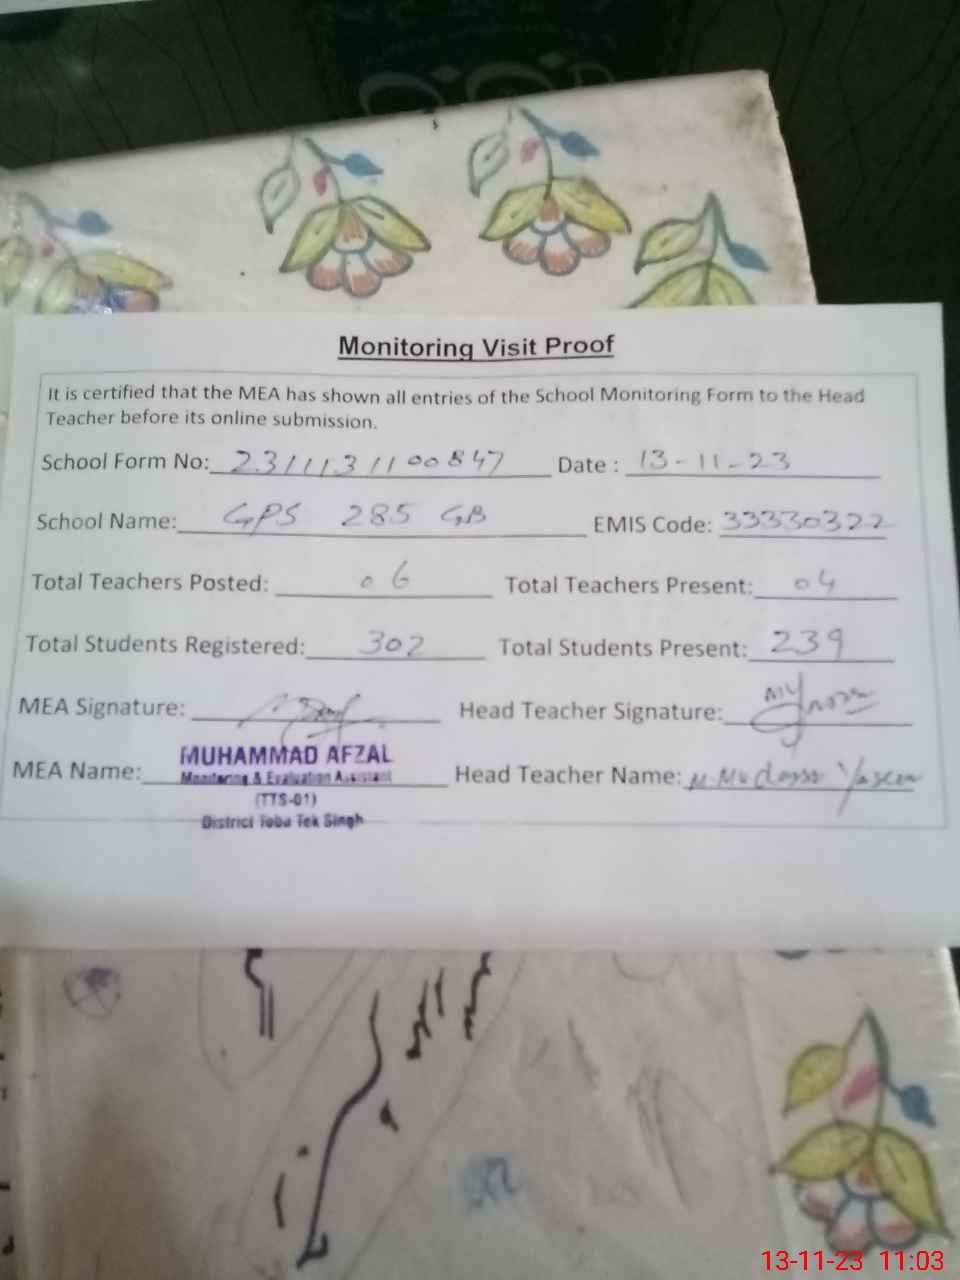 Monitoring Visit Proof
It is certified that the MEA has shown all entries of the School Monitoring Form to the Head
Teacher before its online submission.
School Form No: 2311131100847 Date : 13-11-23
School Name: GPS 285 GB EMIS Code: 33330322
Total Teachers Posted: 06 Total Teachers Present: 04
Total Students Registered: 302 Total Students Present: 239
MEA Signature: Head Teacher Signature:
MEA Name: MUHAMMAD AFZAL Head Teacher Name: M. Yaseen
Monitoring & Evaluation Assistant
(TTS-01)
District Toba Tek Singh
13-11-23 11:03